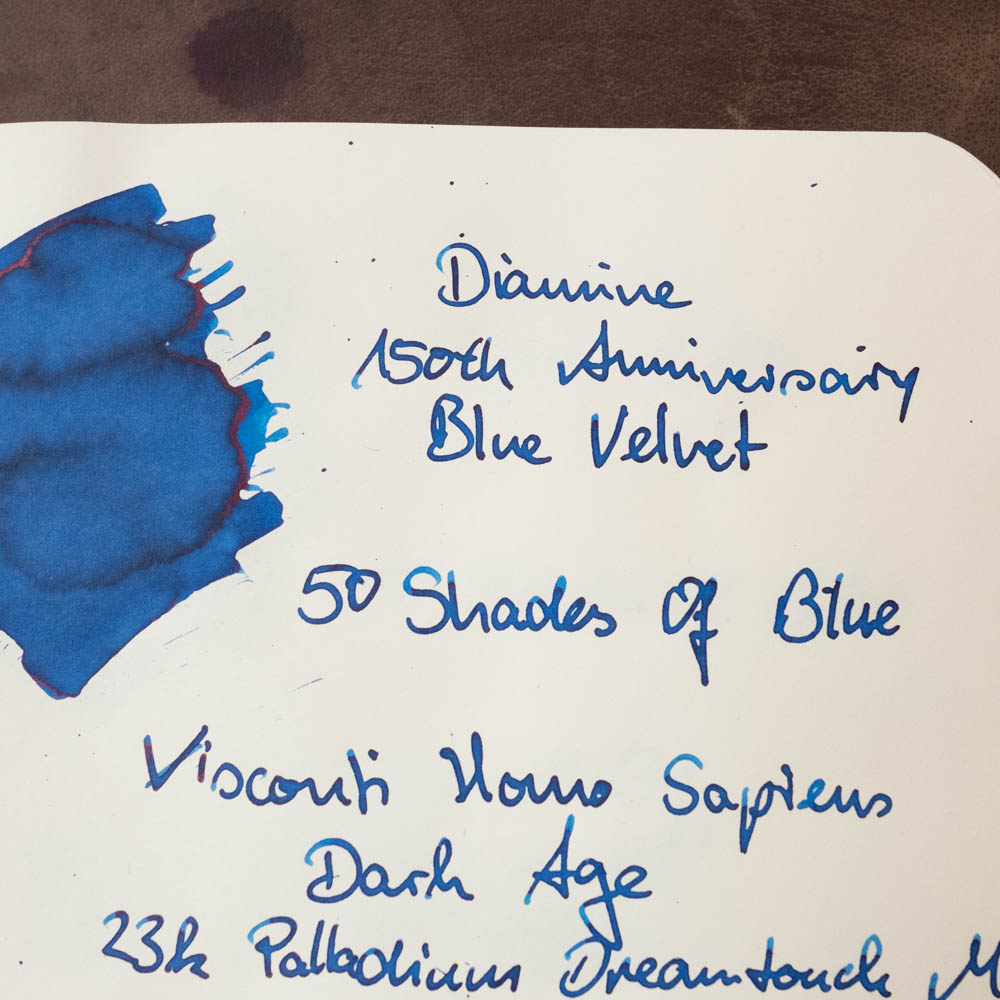 Diamine
150th Anniversary
Blue Velvet
50 Shades Of Blue
Visconti Homo Sapiens
Dark Age
23k Palladium Dreamtouch M